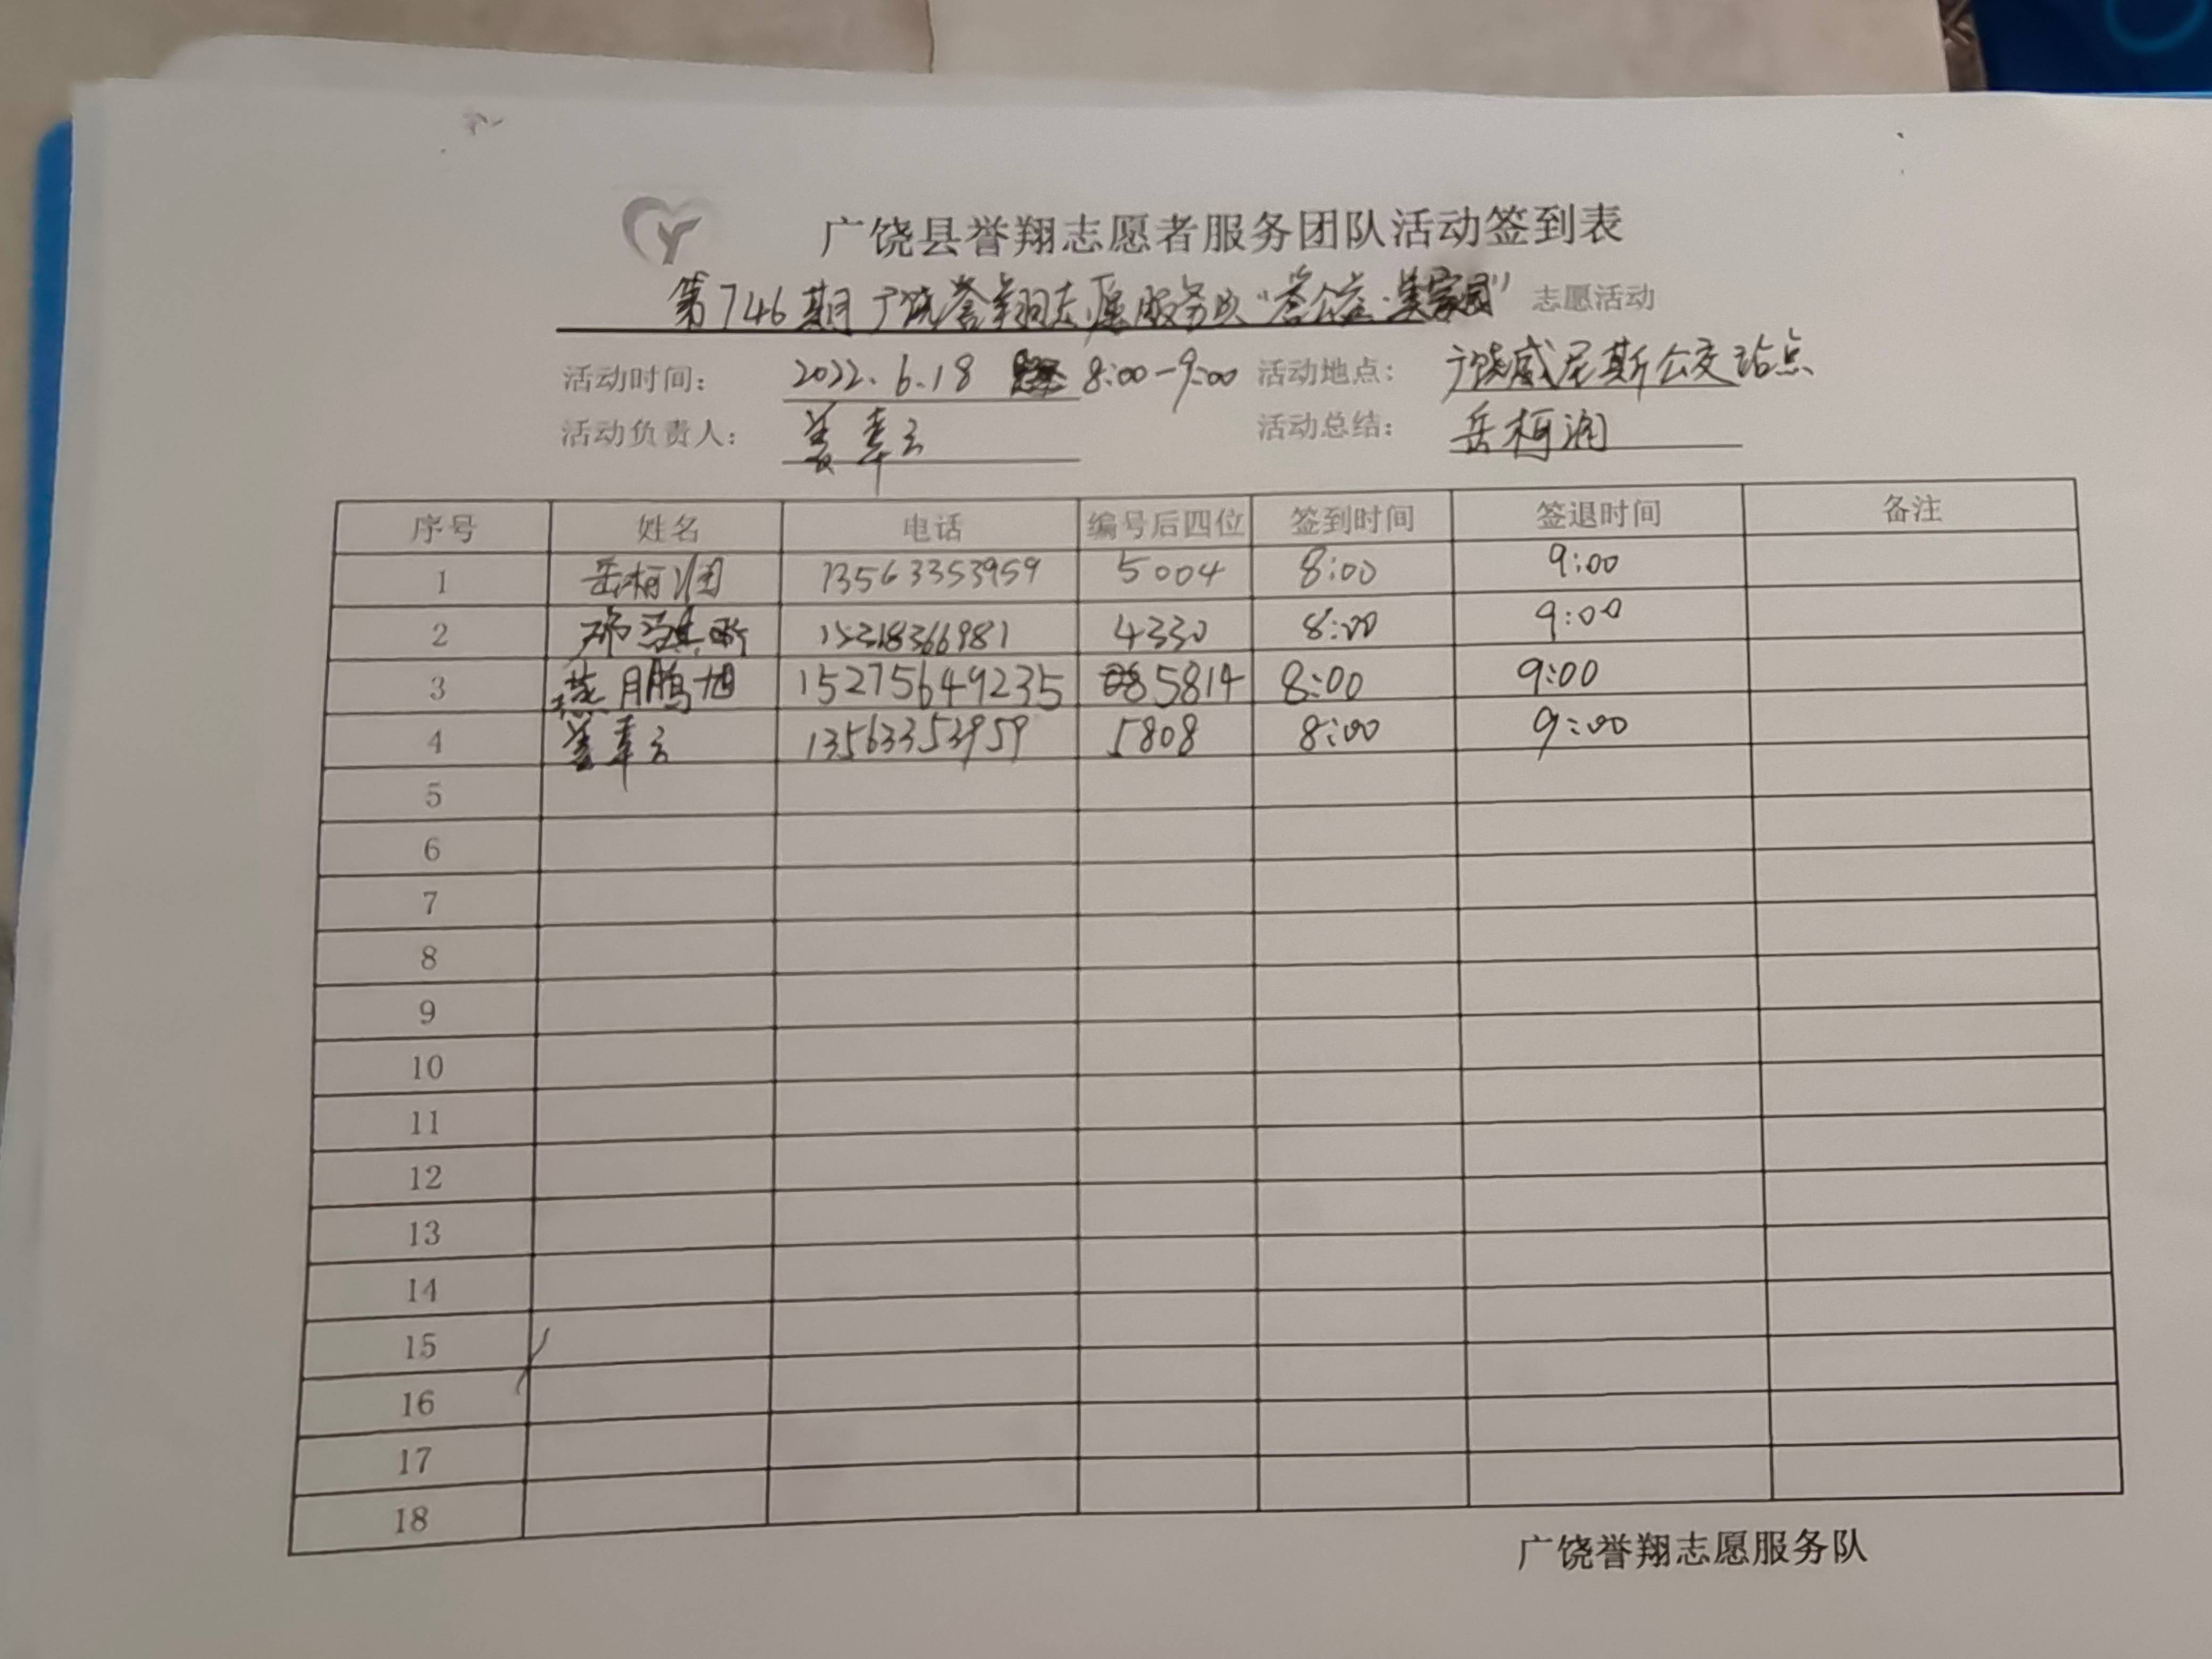 广饶县誉翔志愿者服务团队活动签到表
第746期广饶誉翔志愿服务队“誉公益·美家园”志愿活动
活动时间: 2022.6.18 8:00-9:00 活动地点: 广饶威尼斯公交站点
活动负责人: 姜幸云 活动总结: 岳柯润
序号 姓名 电话 编号后四位 签到时间 签退时间 备注
1 岳柯润 13563353959 5004 8:00 9:00
2 15318366981 4330 8:00 9:00
3 燕鹏旭 15275649235 5814 8:00 9:00
4 姜幸云 13563353959 5808 8:00 9:00
5
6
7
8
9
10
11
12
13
14
15
16
17
18
广饶誉翔志愿服务队